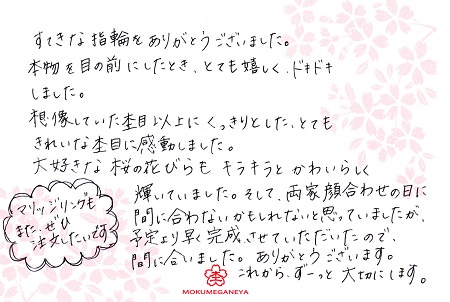 すてきな指輪をありがとうございました。
本物を目の前にしたとき、とても嬉しく、ドキドキ
しました。
想像していた杢目以上にくっきりとした、とても
きれいな杢目に感動しました。
大好きな桜の花びらもキラキラとかわいらしく
輝いていました。そして、両家顔合わせの日に
間に合わないかもしれないと思っていましたが、
予定より早く完成させていただいたので、
間に合いました。ありがとうございます。
これから、ずーっと大切にします。
マリッジリングも
また、ぜひ
注文したいです
MOKUMEGANEYA